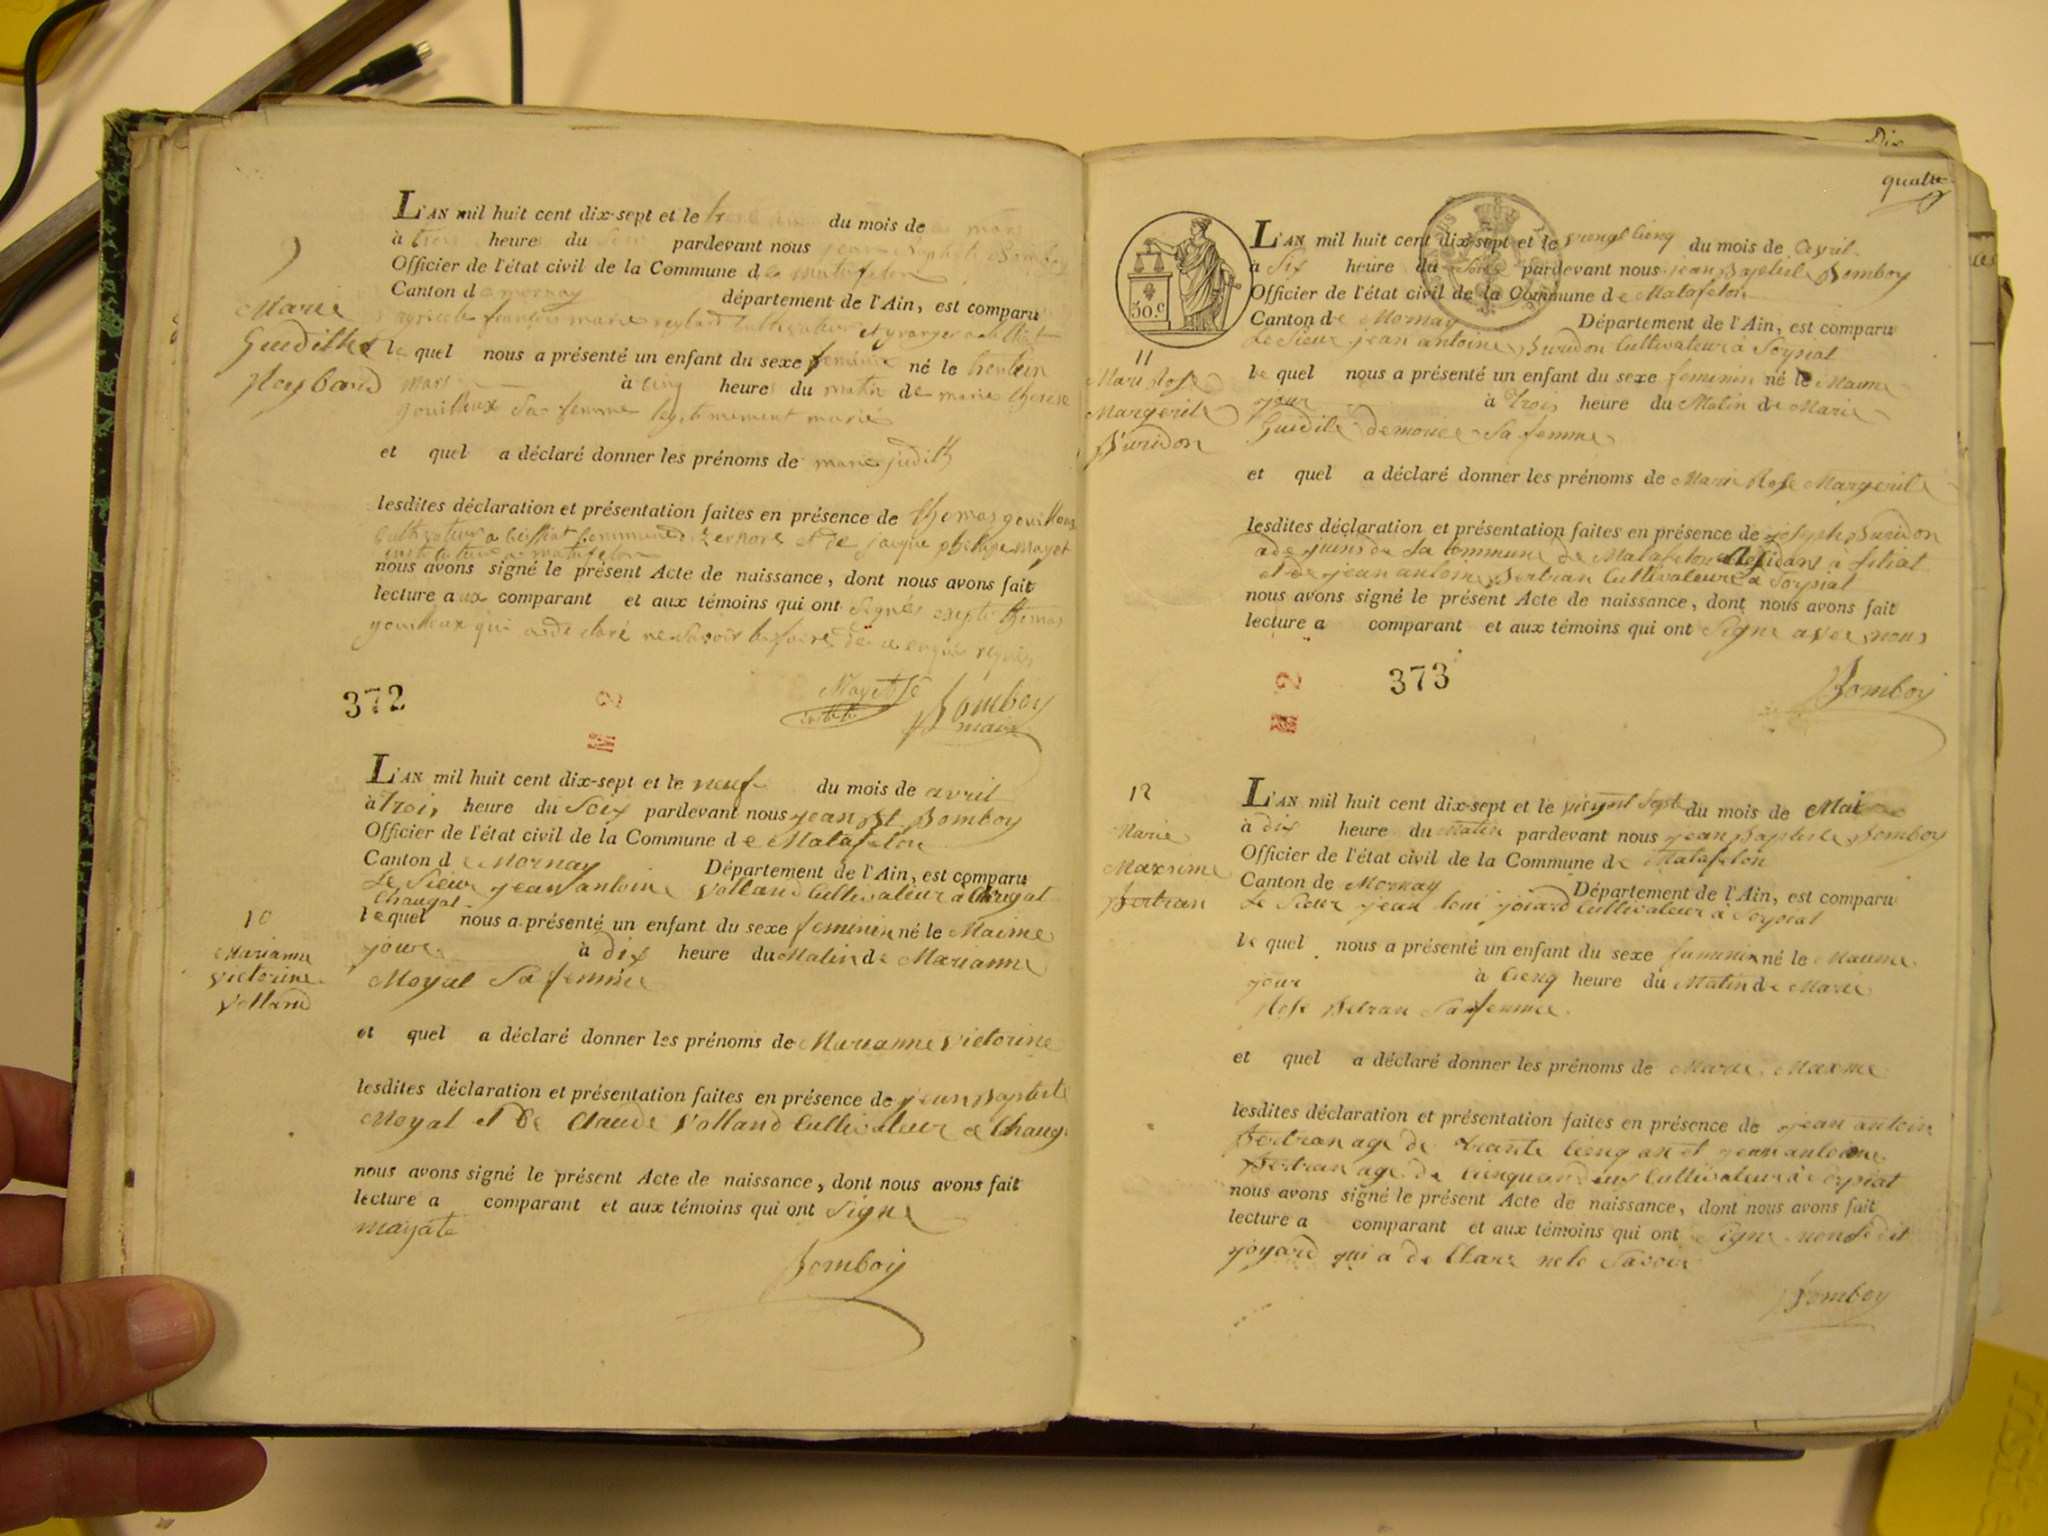 9
Marie
Guedithe
Reybard
L'AN mil huit cent dix-sept et le du mois de mars
à trois heures du soir pardevant nous jean Baptiste Bomboy
Officier de l'état civil de la Commune de matafelon
Canton de mornay département de l'Ain, est comparu
françois marie reybard cultivateur
lequel nous a présenté un enfant du sexe feminin né le trente un
mars à cinq heures du matin de marie therese
gouilleux sa femme legitimement marié
et quel a déclaré donner les prénoms de marie judith
lesdites déclaration et présentation faites en présence de thomas gouilleux
cultivateur a commune et de jacque mayet
instituteur a matafelon
nous avons signé le présent Acte de naissance, dont nous avons fait
lecture aux comparant et aux témoins qui ont signés excepté thomas
gouilleux qui a declaré ne savoir le faire de ce enquis
Bomboy
maire
372
10
Marianne
victorine
Volland
L'AN mil huit cent dix-sept et le neuf du mois de avril
à trois heure du Soir pardevant nous jean Bt Bomboy
Officier de l'état civil de la Commune de Matafelon
Canton de Mornay Département de l'Ain, est comparu
Le Sieur jean antoine Volland Cultivateur à Chaugat
Chaugat
lequel nous a présenté un enfant du sexe feminin né le Maime
jour à dix heure du Matin de Marianne
Moyat Sa femme
et quel a déclaré donner les prénoms de Marianne victorine
lesdites déclaration et présentation faites en présence de jean Baptiste
Moyat et De Claude Volland Cultivateur a Chaug
nous avons signé le présent Acte de naissance, dont nous avons fait
lecture a comparant et aux témoins qui ont Signe
mayate
Bomboy
Dix
quatre
50.c
11
Mari Rose
Margerite
Buridon
L'AN mil huit cent dix-sept et le vengt cienq du mois de Avril
à Six heure du Soir pardevant nous jean Baptiste Bomboy
Officier de l'état civil de la Commune de Matafelon
Canton de Mornay Département de l'Ain, est comparu
Le Sieur jean antoine Buridon Cultivateur à Soysiat
lequel nous a présenté un enfant du sexe feminin né le Maime
jour à trois heure du Matin de Marie
Guedite demouer Sa femme
et quel a déclaré donner les prénoms de Marie Rose Margerite
lesdites déclaration et présentation faites en présence de joseph Buridon
adejuins de la commune de Matafelon Residant à
et de jean antoine Bertran Cultivateur à Soysiat
nous avons signé le présent Acte de naissance, dont nous avons fait
lecture a comparant et aux témoins qui ont Signe avec nous
373
Bomboy
12
Marie
Maxsime
Bertran
L'AN mil huit cent dix-sept et le viengt Sept du mois de Mai
à dix heure du Matin pardevant nous jean Baptiste Bomboy
Officier de l'état civil de la Commune de Matafelon
Canton de Mornay Département de l'Ain, est comparu
Le Sieur jean loui joiard Cultivateur à Soysiat
lequel nous a présenté un enfant du sexe feminin né le Maime
jour à cienq heure du Matin de Marie
Rose Betran Sa femme
et quel a déclaré donner les prénoms de Marie Maxme
lesdites déclaration et présentation faites en présence de jean antoin
Bertran age de trante cienq an et jean antoine
Bertran age de cinquan deux Cultivateur à Soysiat
nous avons signé le présent Acte de naissance, dont nous avons fait
lecture a comparant et aux témoins qui ont Signe non le dit
joyard qui a de Clare ne le Savoir
Bomboy